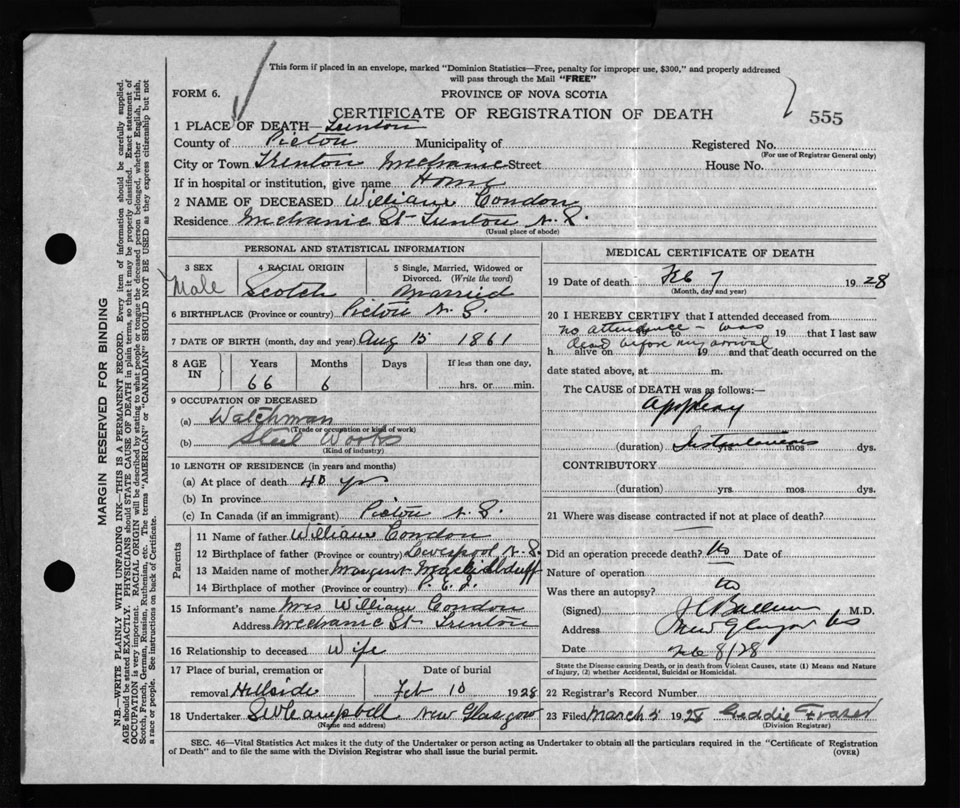 This form if placed in an envelope, marked "Dominion Statistics—Free, penalty for improper use, $300," and properly addressed
will pass through the Mail "FREE"
FORM 6.
PROVINCE OF NOVA SCOTIA
CERTIFICATE OF REGISTRATION OF DEATH
555
1 PLACE OF DEATH— Trenton
County of Pictou Municipality of Registered No.
(For use of Registrar General only)
City or Town Trenton Mechanic Street House No.
If in hospital or institution, give name Home
2 NAME OF DECEASED William Condon
Residence Mechanic St Trenton N.S.
(Usual place of abode)
MARGIN RESERVED FOR BINDING
N.B.—WRITE PLAINLY WITH UNFADING INK—THIS IS A PERMANENT RECORD. Every item of information should be carefully supplied.
AGE should be stated EXACTLY. PHYSICIANS should STATE CAUSE OF DEATH in plain terms, so that it may be properly classified. Exact statement of
OCCUPATION is very important. RACIAL ORIGIN will be described by stating to what people or tongue the deceased person belonged, whether English, Irish,
Scotch, French, German, Russian, Ruthenian, etc. The terms "AMERICAN" or "CANADIAN" SHOULD NOT BE USED as they express citizenship but not
a race or people. See instructions on back of Certificate.
PERSONAL AND STATISTICAL INFORMATION
3 SEX
Male
4 RACIAL ORIGIN
Scotch
5 Single, Married, Widowed or
Divorced. (Write the word)
Married
6 BIRTHPLACE (Province or country) Pictou N.S.
7 DATE OF BIRTH (month, day and year) Aug 15 1861
8 AGE
IN
Years Months Days If less than one day,
66 6 hrs. or min.
9 OCCUPATION OF DECEASED
(a) Watchman
(Trade or occupation or kind of work)
(b) Steel Works
(Kind of industry)
10 LENGTH OF RESIDENCE (in years and months)
(a) At place of death 40 yrs
(b) In province
(c) In Canada (if an immigrant) Pictou N.S.
Parents
11 Name of father William Condon
12 Birthplace of father (Province or country) Liverpool N.S.
13 Maiden name of mother Margaret
14 Birthplace of mother (Province or country) P.E.I.
15 Informant's name Mrs William Condon
Address Mechanic St Trenton
16 Relationship to deceased Wife
17 Place of burial, cremation or Date of burial
removal Hillside Feb 10 1928
18 Undertaker Campbell New Glasgow
(Name and address)
MEDICAL CERTIFICATE OF DEATH
19 Date of death Feb 7 1928
(Month, day and year)
20 I HEREBY CERTIFY that I attended deceased from
no attendance — was 19 to 19 that I last saw
dead before my arrival
h alive on 19 and that death occurred on the
date stated above, at m.
The CAUSE OF DEATH was as follows:—
Apoplexy
(duration) Instantaneous yrs. mos dys.
CONTRIBUTORY
(duration) yrs mos dys.
21 Where was disease contracted if not at place of death?
Did an operation precede death? No Date of
Nature of operation
Was there an autopsy? No
(Signed) M.D.
Address New Glasgow NS
Date Feb 8/28
State the Disease causing Death, or in death from Violent Causes, state (1) Means and Nature
of Injury, (2) whether Accidental, Suicidal or Homicidal.
22 Registrar's Record Number
23 Filed March 5 1928 Fraser
(Division Registrar)
SEC. 46—Vital Statistics Act makes it the duty of the Undertaker or person acting as Undertaker to obtain all the particulars required in the "Certificate of Registration
of Death" and to file the same with the Division Registrar who shall issue the burial permit. (OVER)